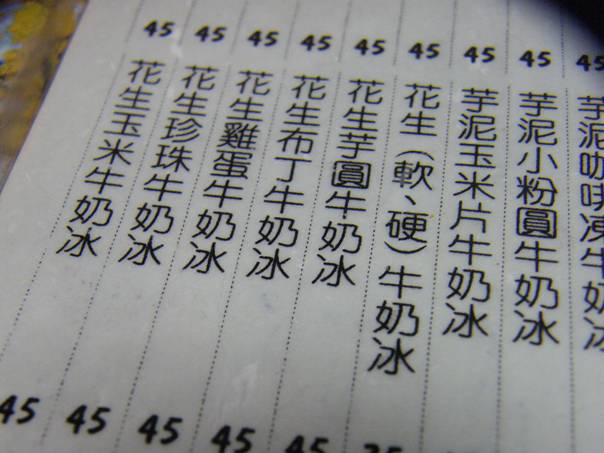 45 45 45 45 45 45 45 45 45
芋泥咖啡凍牛奶冰
芋泥小粉圓牛奶冰
芋泥玉米片牛奶冰
花生（軟、硬）牛奶冰
花生芋圓牛奶冰
花生布丁牛奶冰
花生雞蛋牛奶冰
花生珍珠牛奶冰
花生玉米牛奶冰
45 45 45 45 45